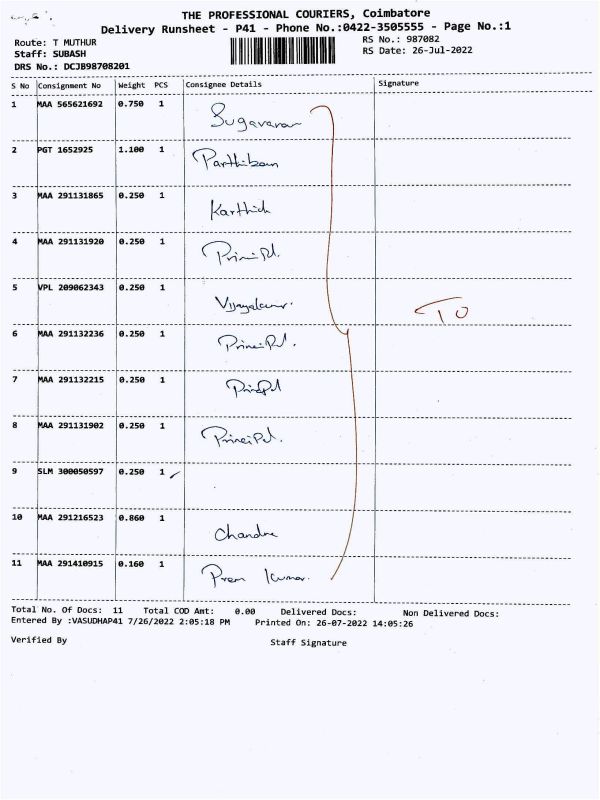 THE PROFESSIONAL COURIERS, Coimbatore
Delivery Runsheet - P41 - Phone No.:0422-3505555 - Page No.:1
Route: T MUTHUR RS No.: 987082
Staff: SUBASH RS Date: 26-Jul-2022
DRS No.: DCJB98708201
S No Consignment No Weight PCS Consignee Details Signature
1 MAA 565621692 0.750 1 Sugavanan
2 PGT 1652925 1.100 1 Parthiban
3 MAA 291131865 0.250 1 Karthick
4 MAA 291131920 0.250 1
5 VPL 209062343 0.250 1 Vijayakumar. TO
6 MAA 291132236 0.250 1
7 MAA 291132215 0.250 1
8 MAA 291131902 0.250 1
9 SLM 300050597 0.250 1
10 MAA 291216523 0.860 1 Chandra
11 MAA 291410915 0.160 1 Prem Kumar.
Total No. Of Docs: 11 Total COD Amt: 0.00 Delivered Docs: Non Delivered Docs:
Entered By :VASUDHAP41 7/26/2022 2:05:18 PM Printed On: 26-07-2022 14:05:26
Verified By Staff Signature